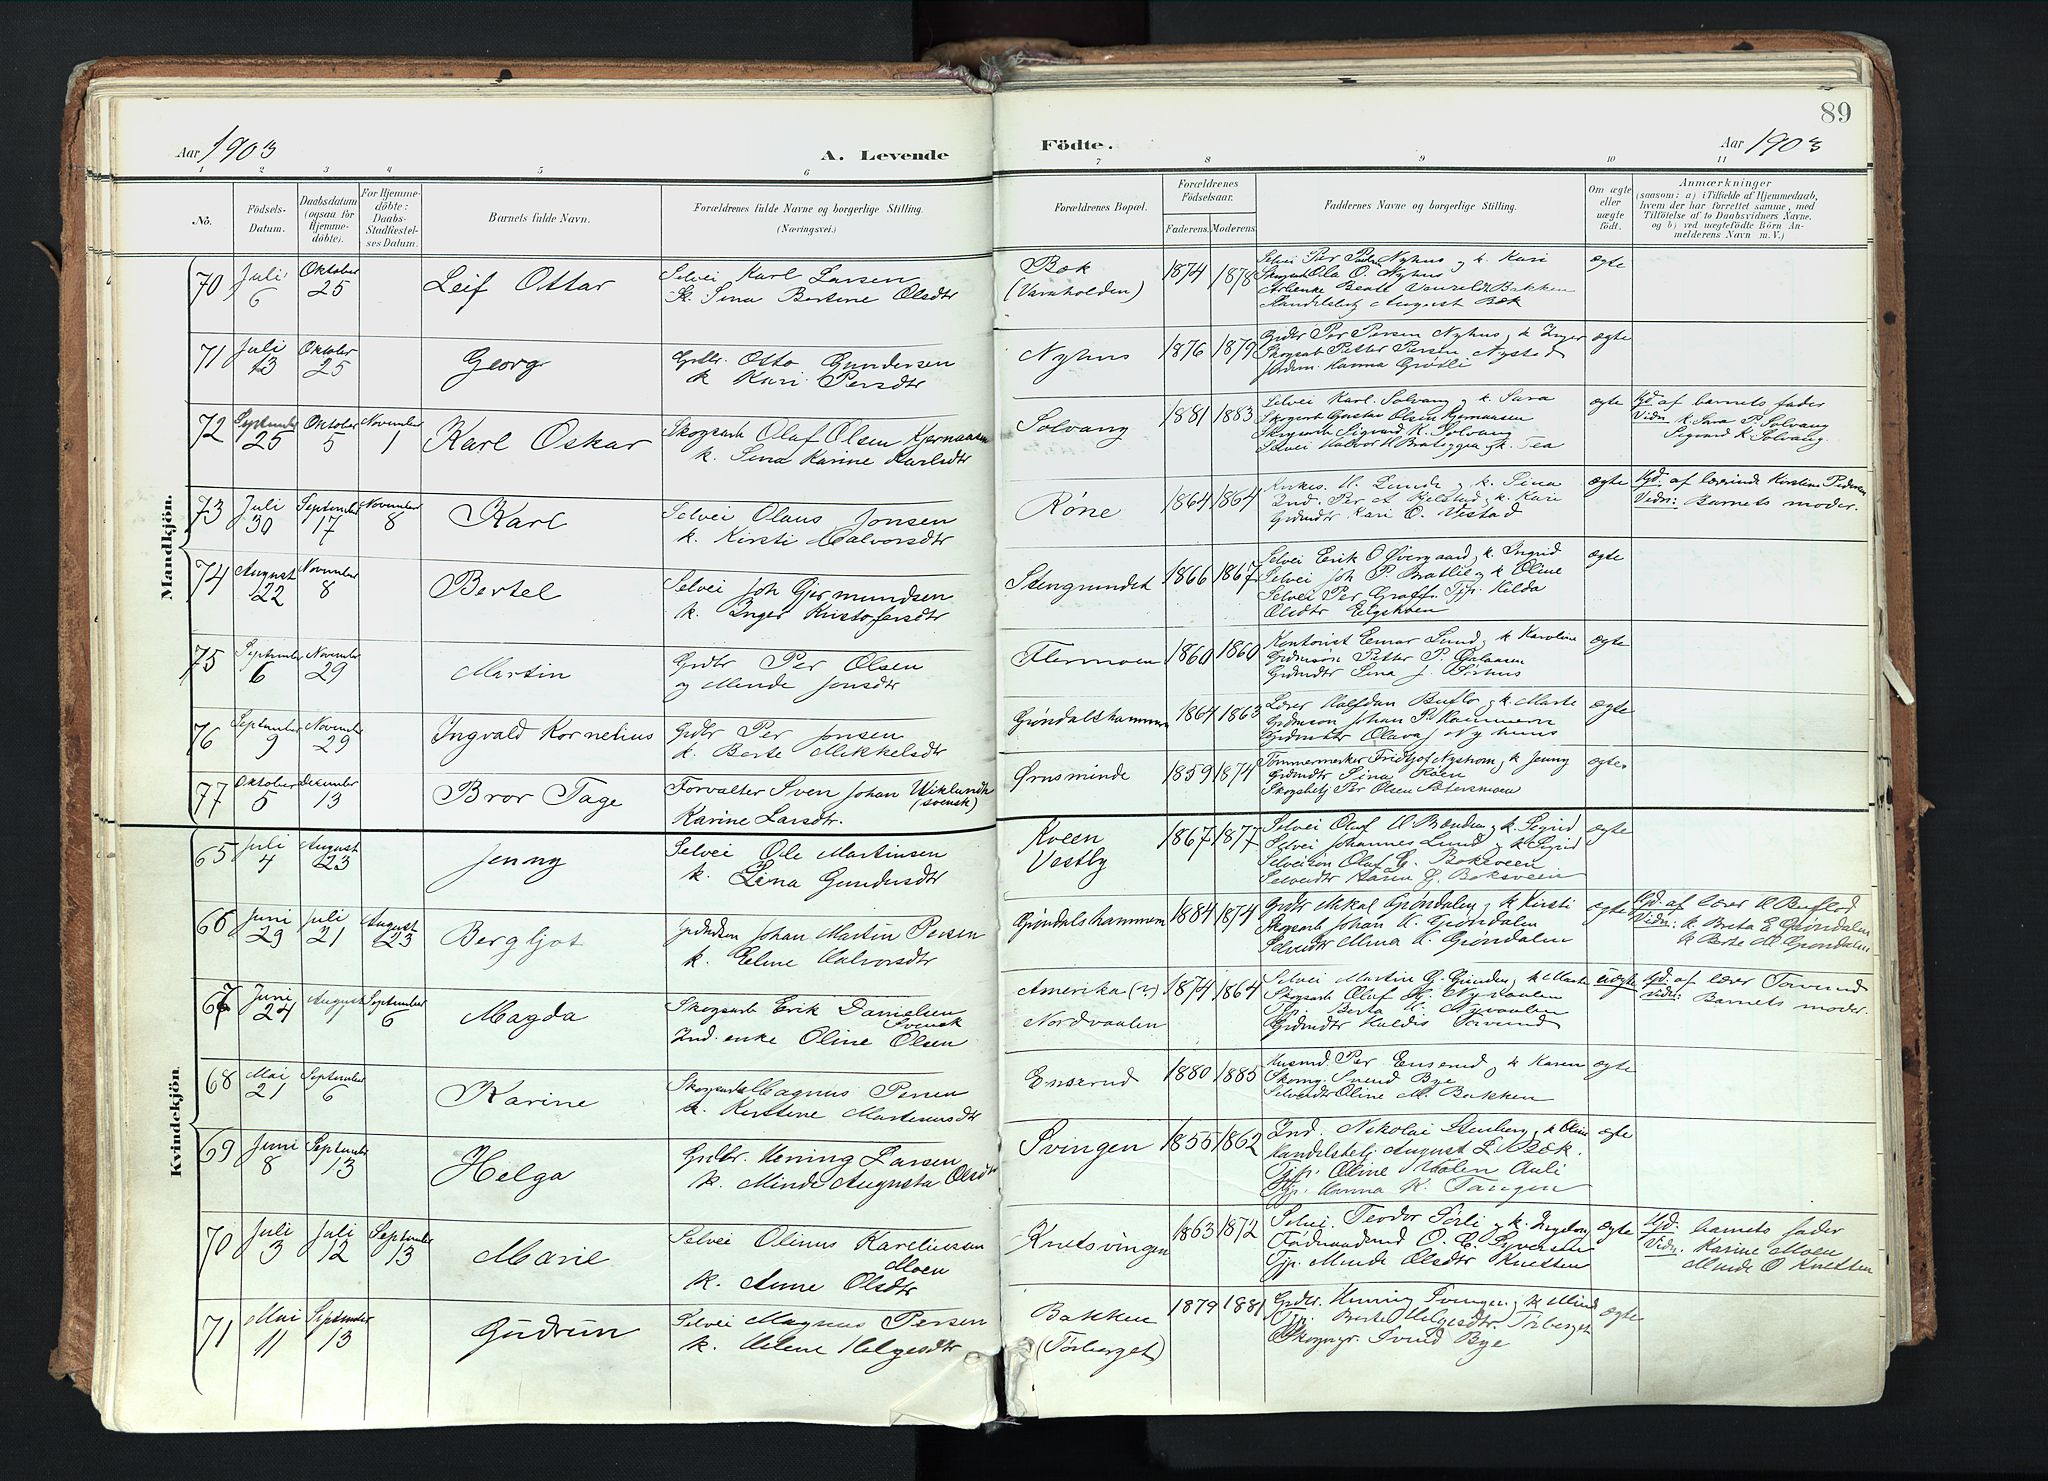 89
Aar 1903
A. Levende
Födte.
Aar 1903
1 2 3 4 5 6 7 8 9 10 11
Nò.
Födsels-Datum.
Daabsdatum (ogsaa for Hjemmedöbte).
For Hjemmedöbte: Daabs-Stadfæstelses Datum.
Barnets fulde Navn.
Forældrenes fulde Navne og borgerlige Stilling.
(Næringsvei.)
Forældrenes Bopæl.
Forældrenes Födselsaar.
Faderens. Moderens.
Faddernes Navne og borgerlige Stilling.
Om ægte eller uægte födt.
Anmærkninger
(saasom: a) i Tilfælde af Hjemmedaab, hvem der har forrettet samme, med Tilföielse af to Daabsvidners Navne. og b) ved uægtefödte Börn Anmelderens Navn m. V.)
Mandkjön.
70 Juli 6 Oktober 25 Leif Ottar Selvei Karl Larsen
K. Sina Bertine Olsdtr
Bæk (Varnholden) 1874 1878
Selvei Per Nyhus og k. Kari
Skogsarb Ola O. Nyhus
Bakken
Handelsbetj August Bæk
ægte
71 Juli 13 Oktober 25 Georg Grdbr. Otto Gundersen
k Kari Persdtr
Nyhus 1876 1879
Grdbr Per Persen Nyhus og k. Inger
Skogsarb Petter Persen Nystad
Hanna Grøtli
ægte
72 September 25 Oktober 5 November 1 Karl Oskar Skogsarb Olaf Olsen Kjernaasen
k. Sina Karine Karlsdtr
Solvang 1881 1883
Selvei Karl Solvang og k. Sara
Skogsarb Gustav Olsen Kjernaasen
Skogsarb Sigvard K. Solvang
Selvei Halvor H. og k. Tea
ægte
Hjd af barnets fader
Vidn k. Sara P. Solvang
Sigvard K. Solvang
73 Juli 30 September 17 November 8 Karl Selvei Olaus Jonsen
k. Kirsti Halvorsdtr
Røne 1864 1864
H. Lunde og k. Sina
Ind. Per A Kjelstad og k. Kari
Grdmdtr Kari O. Vestad
ægte
Hjd. af lærerinde Kirstine Pedersen
Vidn: Barnets moder.
74 August 22 November 8 Bertel Selvei Joh Gjermundsen
k. Inger Kristofersdtr
Stengrundet 1866 1867
Selvei Erik O Øvergaard og k. Ingrid
Selvei Joh P. Brattli og k Oline
Selvei Per Graff. Tjp. Hilda
Olsdtr
ægte
75 September 6 November 29 Martin Grdbr Per Olsen
og Minde Jonsdtr
Flermoen 1860 1860
Kontorist Einar Lund og k Karoline
Grdmsøn Petter P. Galaasen
Grdmdtr Lina J. Sørhus
ægte
76 September 9 November 29 Ingvald Kornelius Grdbr Per Jonsen
k. Berte Mikkelsdtr
Grøndalshammeren 1864 1863
Lærer Halfdan Buflo og k. Marte
Grdmsøn Johan P. Hammern
Grdmdtr Olava J Nyhuus
ægte
77 Oktober 5 December 13 Bror Tage Forvalter Sven Johan Wiklundh (svensk)
Karine Larsdtr.
Ørnsminde 1859 1874
Tømmermerker Fridtjof Nystrøm og k Jenny
Grdmdtr Lina Røen
Skogsbetj Per Olsen Sætersmoen
ægte
Kvindekjön.
65 Juli 4 August 23 Jenny Selvei Ole Martinsen
k. Lina Gundersdtr
Kveen Vestby 1867 1877
Selvei Olaf H Brænden og k. Sigrid
Selvei Johannes Lund og k Sigrid
Selveisøn Olaf E. Bokveen
Selveidtr Karen G. Boksveen
ægte
66 Juni 29 Juli 21 August 23 Bergljot Grdmdsøn Johan Martin Persen
k. Eline Halvorsdtr
Grøndalshammern 1884 1874
Grdbr Mikal Grøndalen og k Kirsti
Skogsarb Johan K. Grøndalen
Selveidtr Mina K. Grøndalen
ægte
Hjd. af lærer H Buflod
Vidn: k. Berta E Grøndalen
k Berte M. Grøndalen
67 Juni 24 August 1 September 6 Magda Skogsarb Erik Danielsen
Svensk
Ind. enke Oline Olsen
Amerika (?)
Nordvaalen 1874 1864
Selvei Martin G. Grinden og k Marte
Skogsarb Olaf H. Nyvaalen
Tjp. Berta K. Nyvaalen
Grdmdtr Haldis Torvund
uægte
Hjd. af lærer Torvund
Vidn: Barnets moder.
68 Mai 21 September 6 Karine Skogsarb Magnus Persen
k. Kirstine Martinusdtr
Enserud 1880 1885
Husmd Per Enserud og k Karen
Skomg. Svend Bye
Selveidtr Oline M. Bakken
ægte
69 Juni 8 September 13 Helga Grdbr. Hening Larsen
k. Minde Augusta Olsdtr
Svingen 1855 1862
Ind. Nikolai Stenberg og k Oline
Handelsbetj August L. Bæk.
Tjp. Oline Moen Auli
Tjp. Hanna K. Tangen
ægte
70 Juli 3 Juli 12 September 13 Marie Selvei Olinus Kareliussen
Moen
k. Anne Olsdtr
Knetsvingen 1863 1872
Selvei. Teodor Sørli og k. Ingeborg
O. C. Syversen
Tjp. Minde Olsdtr Knetten
ægte
Hjd: barnets fader
Vidn: Karine Moen
Minde O Knetten
71 Mai 11 September 13 Gudrun Selvei Magnus Persen
k. Helene Helgesdtr
Bakken (Törberget) 1879 1881
Grdbr. Hening Svingen og k Minde
Tjp. Berte Helgesdtr Törberget
Svend Bye
ægte